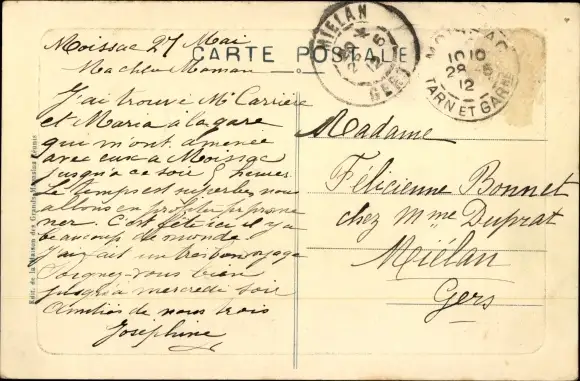 Moissac 27 Mai
CARTE POSTALE
Ma chère Maman
J'ai trouvé Mr Carrière
et Maria à la gare
qui m'ont amenée
avec eux à Moissac
jusqu'à ce soir 8 heures
Le temps est superbe, nous
allons en profiter pr prome
ner. C'est fête ici il y a
beaucoup de monde.
J'ai fait un très bon voyage
Soignez-vous bien
jusqu'à mercredi soir
Amitiés de nous trois
Joséphine
Madame
Félicienne Bonnet
chez Mme Duprat
Miélan
Gers
MIELAN
GERS
10 10
28 -5
12
TARN ET GARNE
Edit. de la Maison des Grands Magasins Réunis